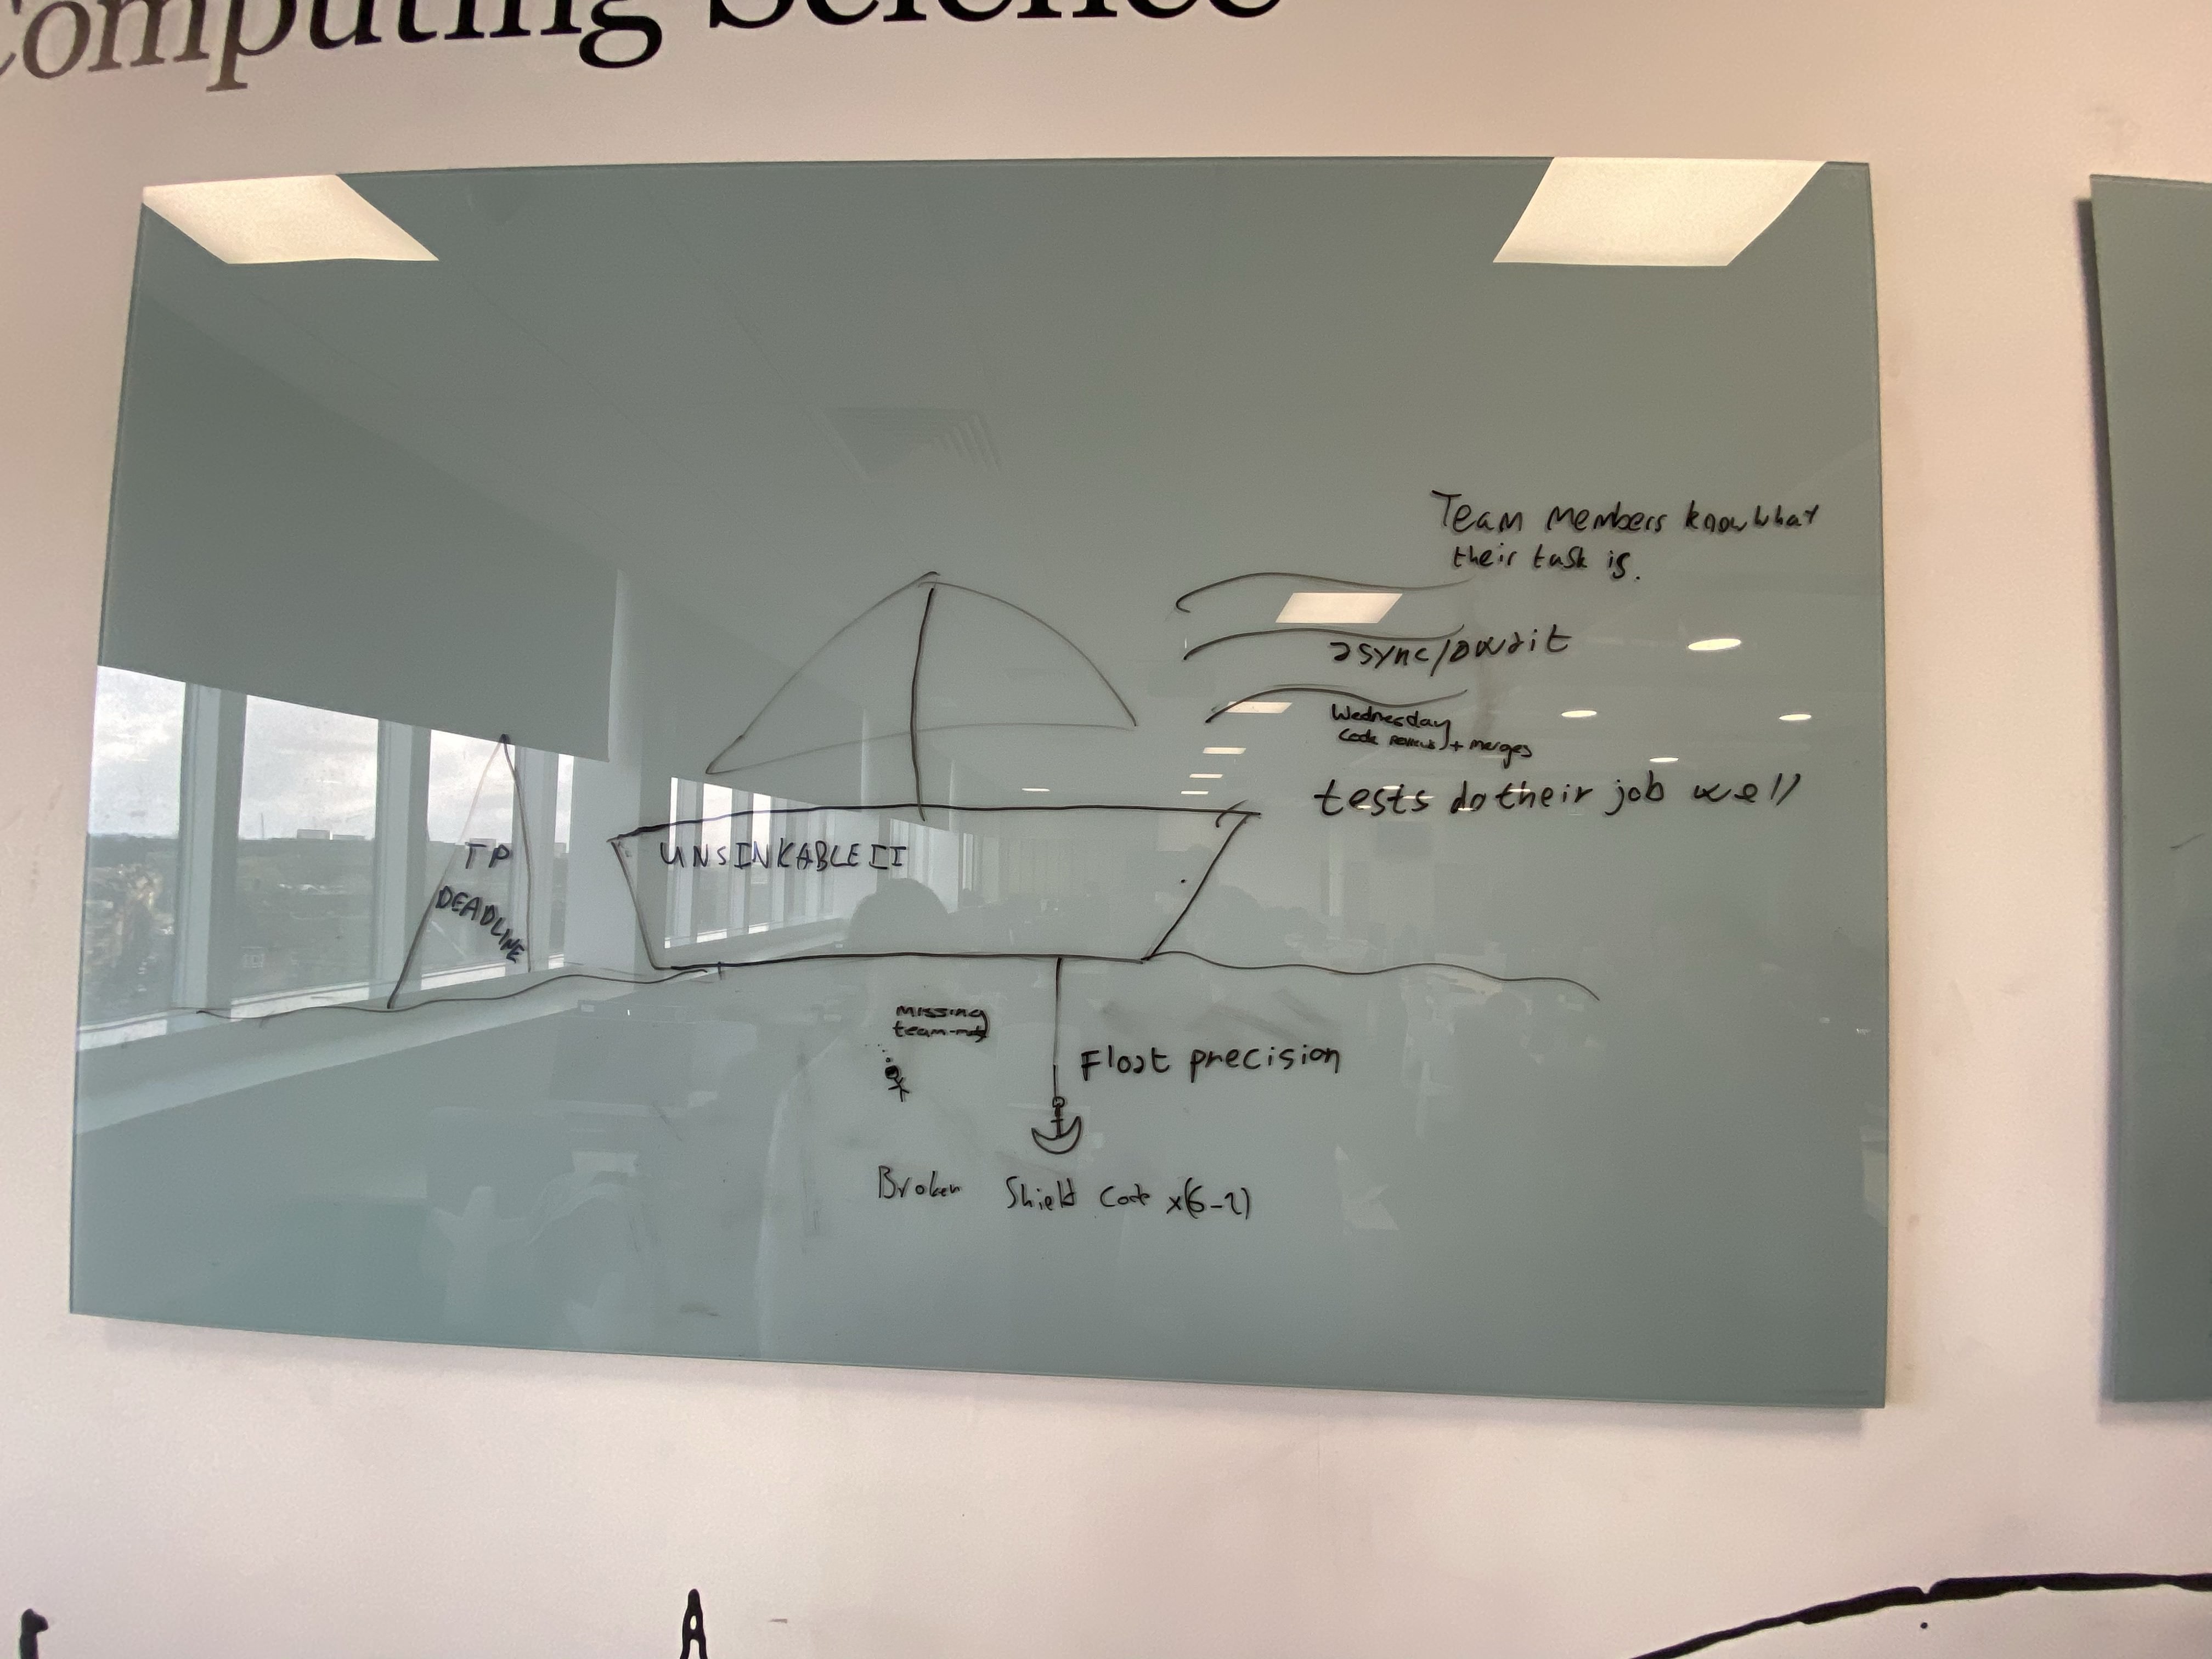 Computing Science
Team members know what
their task is.
async/await
Wednesday
code reviews + merges
tests do their job well
UNSINKABLE II
TP
DEADLINE
missing
Float precision
Broken Shield Code